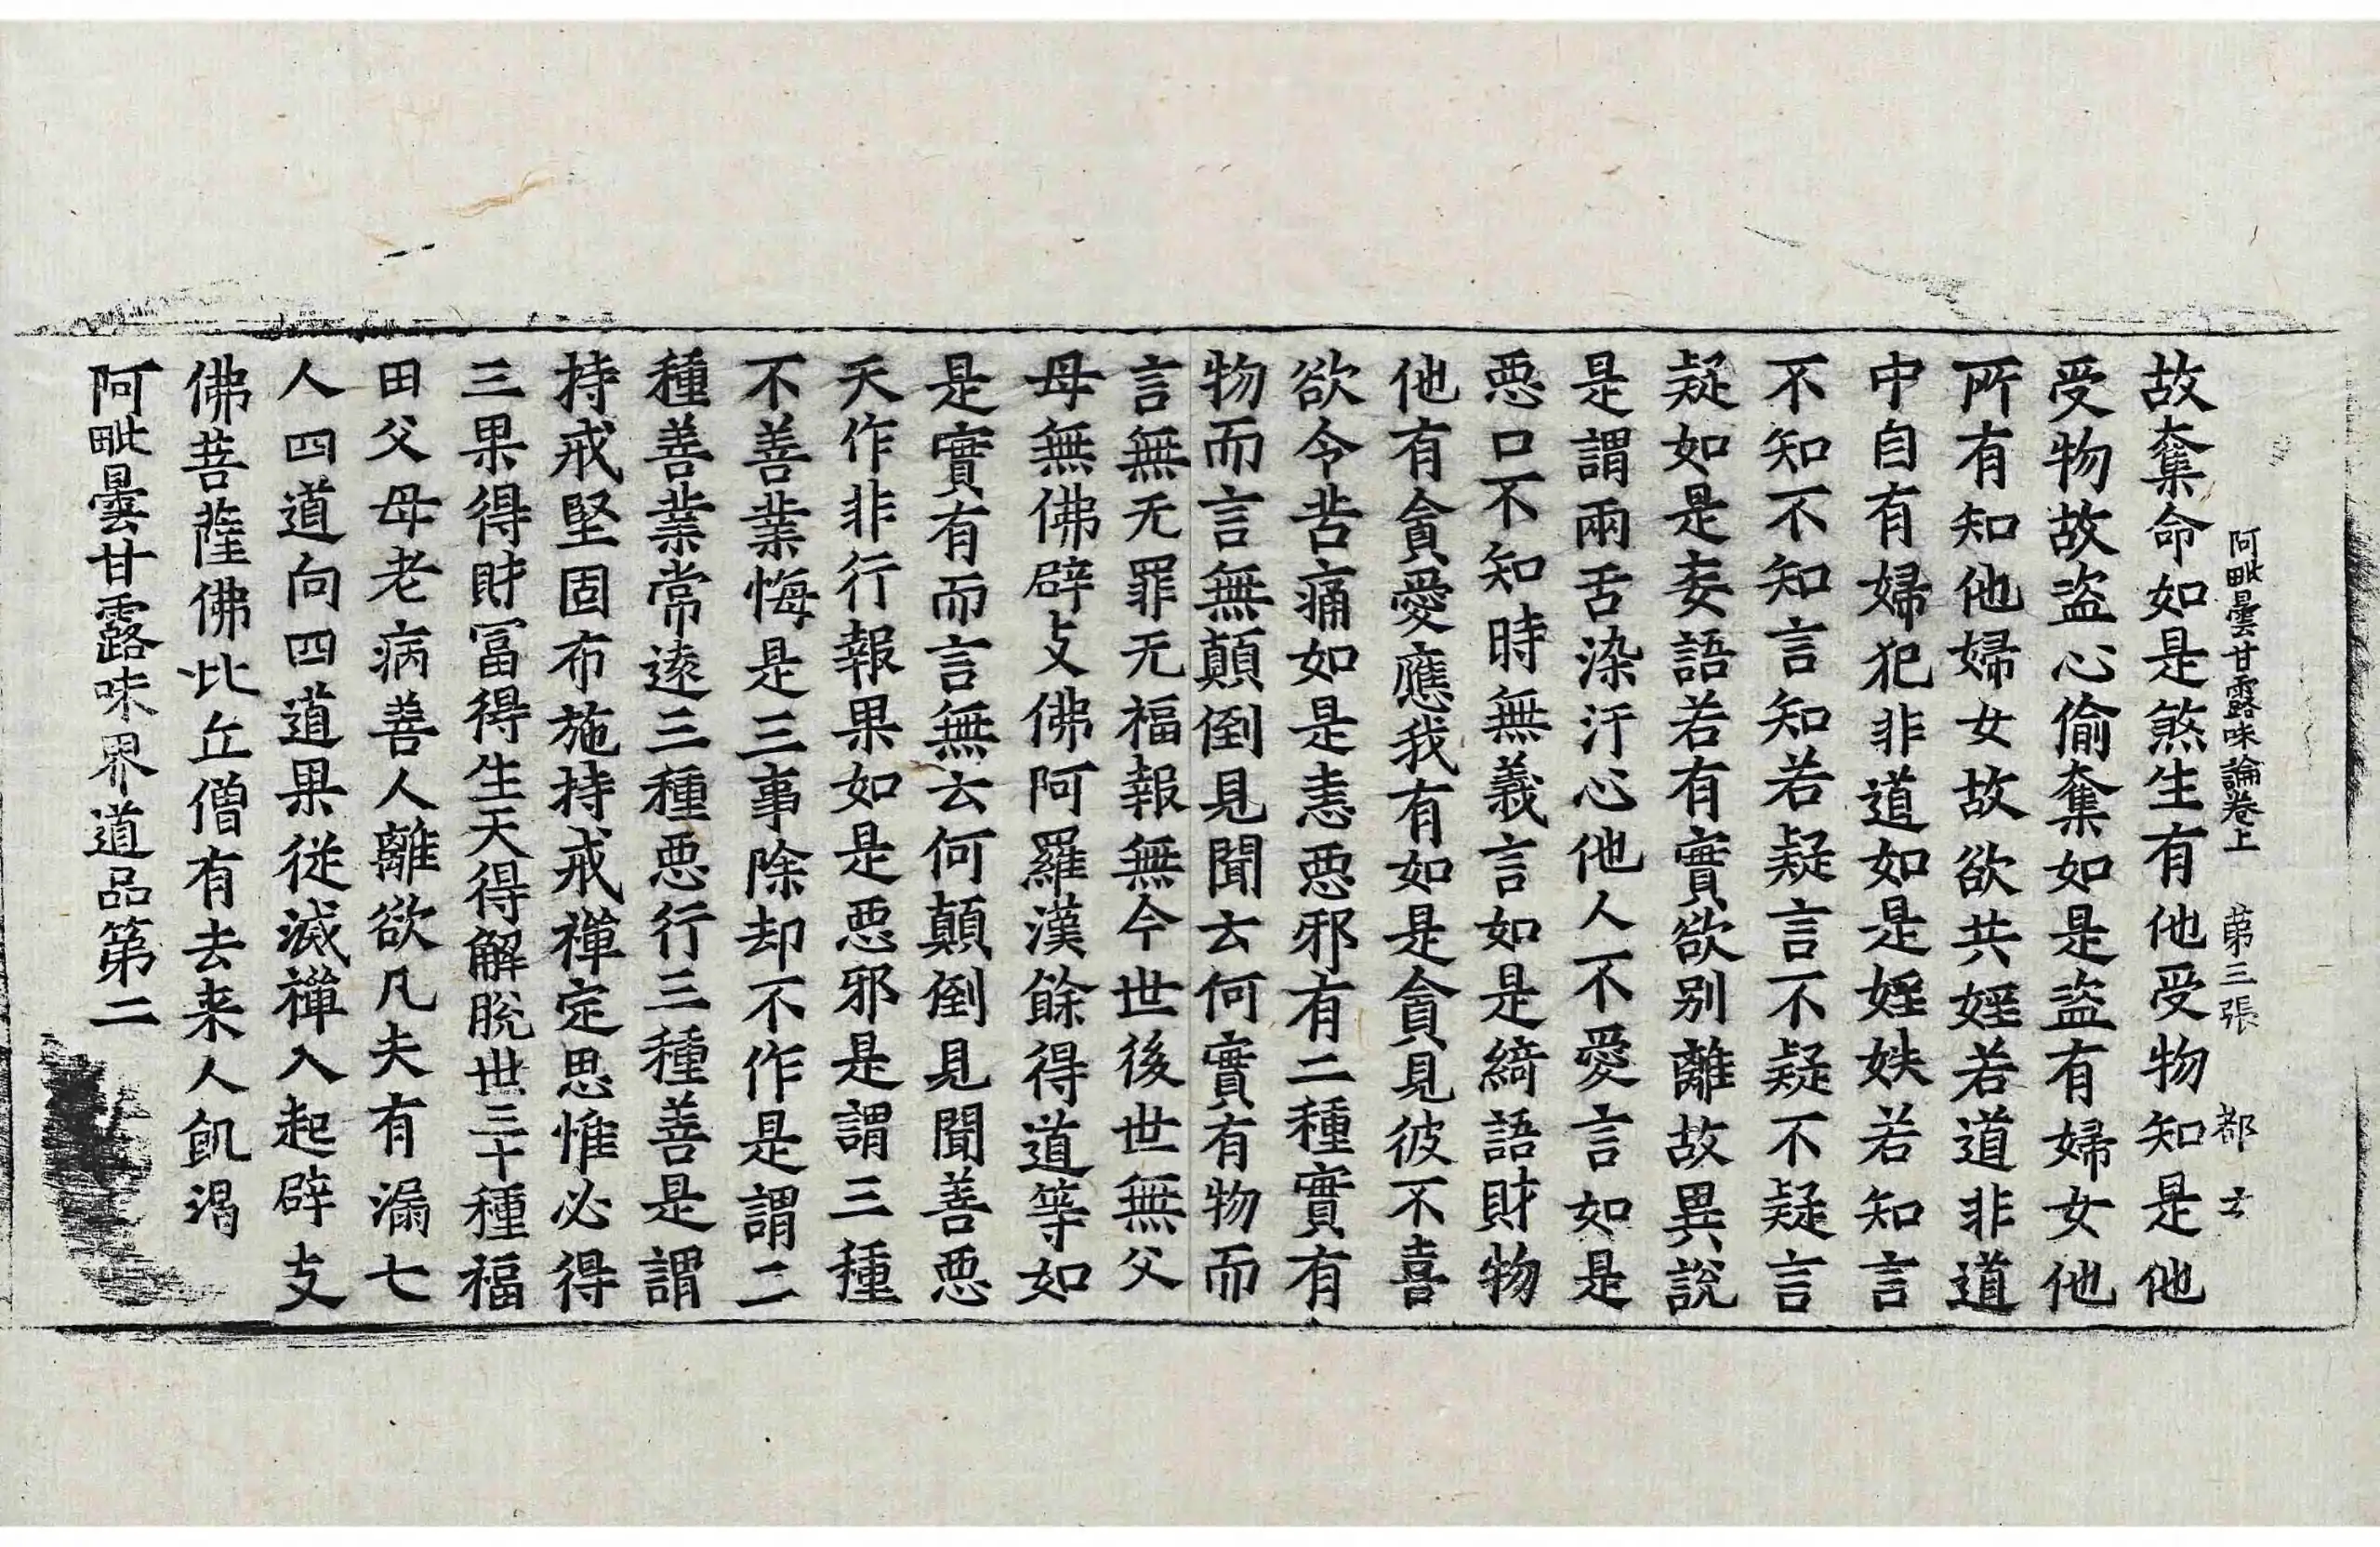 阿毗曇甘露味論卷上 苐三張 都
故奪命如是煞生有他受物知是他
受物故盜心偷奪如是盜有婦女他
所有知他婦女故欲共婬若道非道
中自有婦犯非道如是婬妷若知言
不知不知言知若疑言不疑不疑言
疑如是妄語若有實欲別離故異說
是謂兩舌染汙心他人不愛言如是
惡口不知時無義言如是綺語財物
他有貪愛應我有如是貪見彼不喜
欲令苦痛如是恚惡邪有二種實有
物而言無顛倒見聞云何實有物而
言無无罪无福報無今世後世無父
母無佛辟支佛阿羅漢餘得道等如
是實有而言無云何顛倒見聞善惡
天作非行報果如是惡邪是謂三種
不善業悔是三事除却不作是謂二
種善業常遠三種惡行三種善是謂
持戒堅固布施持戒禪定思惟必得
三果得財冨得生天得解脫世三十種福
田父母老病善人離欲凡夫有漏七
人四道向四道果從滅禪入起辟支
佛菩薩佛比丘僧有去来人飢渴
阿毗曇甘露味界道品第二